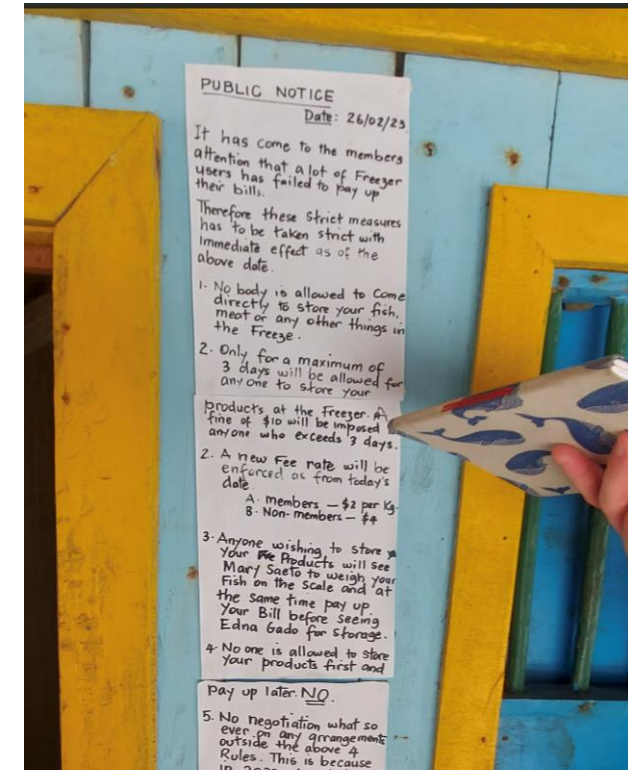 PUBLIC NOTICE
Date: 26/02/23
It has come to the members
attention that a lot of Freezer
users has failed to pay up
their bills.
Therefore these Strict measures
has to be taken strict with
Immediate effect as of the
above date.
1. No body is allowed to Come
directly to store your fish,
meat or any other things in
the Freeze.
2. Only for a maximum of
3 days will be allowed for
anyone to store your
products at the Freezer. A
fine of $10 will be imposed
anyone who exceeds 3 days.
2. A new Fee rate will be
enforced as from today's
date.
A. members — $2 per Kg.
B. Non-members — $4
3. Anyone wishing to store
your Products will see
Mary Saeto to weigh your
Fish on the Scale and at
the same time pay up
Your Bill before seeing
Edna Gado for storage.
4. No one is allowed to store
your products first and
pay up later. NO.
5. No negotiation what so
ever on any arrangements
outside the above 4
Rules. This is because